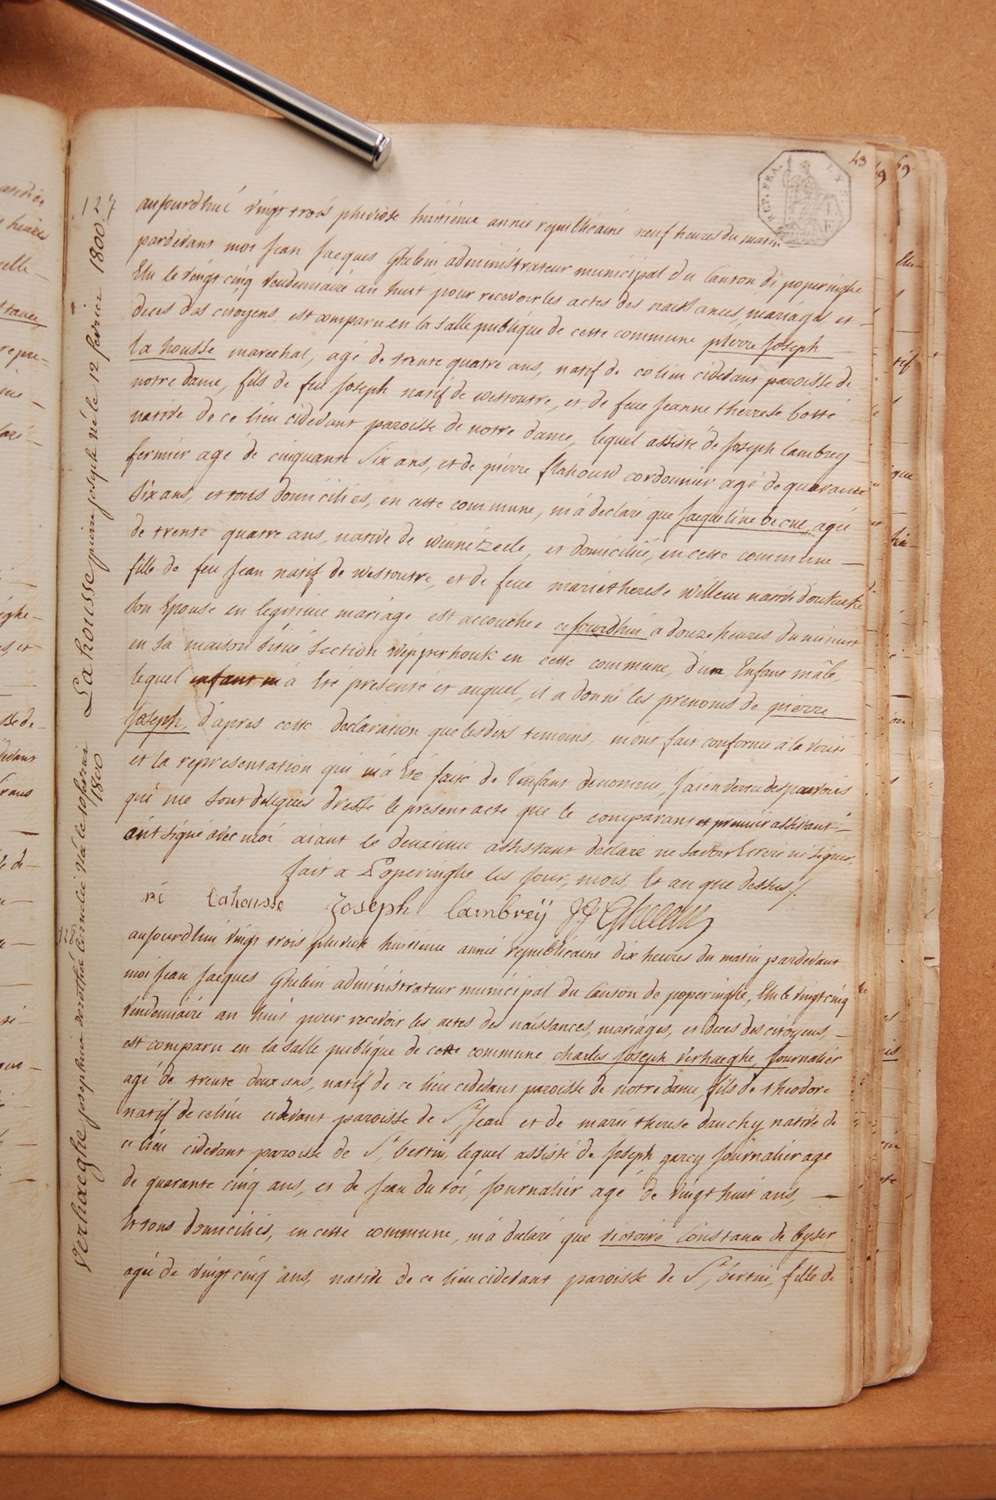 43
49
59
REP. FRA.
127
La housse pierre joseph né le 12 fevrier 1800
aujourdhui vingt trois pluviose huitieme année republicaine neuf heures du matin
pardevant moi Jean Jacques Ghelein administrateur municipal du Canton de poperinghe
Elu le vingt cinq vendemiaire an huit pour recevoir les actes des naissances, mariages et
deces des citoyens, est comparu en la salle publique de cette commune pierre joseph
la housse marechal, agé de trente quatre ans, natif de ce lieu cidevant paroisse de
notre dame, fils de feu joseph natif de westoutre, et de feue jeanne therese botté
native de ce lieu cidevant paroisse de notre dame, lequel assisté de joseph Cambreÿ
fermier agé de cinquante six ans, et de pierre flahouw cordonnier agé de quarante
six ans, et tous domiciliés, en cette commune, m'a declaré que jacqueline becue, agée
de trente quatre ans, native de winnezeele, et domiciliée, en cette commune
fille de feu jean natif de westoutre, et de feue marie therese willem native
son Epouse en legitime mariage est accouchée cejourdhui à douze heures du minuit
en sa maison située section in epperhouk en cette commune, d'un Enfant mâle,
lequel enfant m'a été presenté et auquel, il a donné les prenoms de pierre
joseph, d'apres cette declaration que lesdits temoins, m'ont fait conforme a la verité
et la representation qui m'a été faite de l'enfant denommé, j'ai en vertu des pouvoirs
qui me sont delegués dressé le present acte que le comparant et premier assistant
ont signé avec moi aiant le deuxieme assistant declaré ne savoir Ecrire ni signer,
fait a Poperinghe les jour, mois, et an que dessus /.
Lahousse Joseph Cambreÿ JJ Ghelein
1800
aujourdhui vingt trois pluviose huitieme année republicaine dix heures du matin pardevant
moi Jean Jacques Ghelein administrateur municipal du Canton de poperinghe, Elu le vingt cinq
vendemiaire an huit pour recevoir les actes des naissances, mariages, et deces des citoyens,
est comparu en la salle publique de cette commune charles joseph verhaeghe, journalier
agé de trente deux ans, natif de ce lieu cidevant paroisse de notre dame, fils de theodore
natif de ce lieu cidevant paroisse de St Jean et de marie therese dauchy native de
ce lieu cidevant paroisse de St bertin, lequel assisté de joseph garcy journalier agé
de quarante cinq ans, et de jean du foi, journalier agé de vingt huit ans,
et tous domiciliés, en cette commune, m'a declaré que victoire Constance de Cyser
agée de vingt cinq ans, native de ce lieu cidevant paroisse de St bertin, fille de